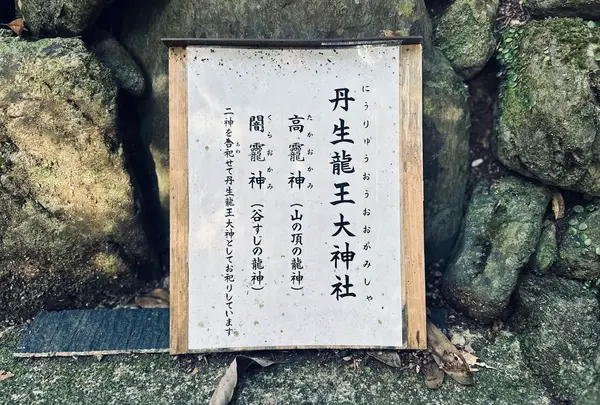 にうりゅうおうおおがみしゃ
丹生龍王大神社
たかおかみ
高龗神（山の頂の龍神）
くらおかみ
闇龗神（谷すじの龍神）
あわ
二神を合祀せて丹生龍王大神としてお祀りしています